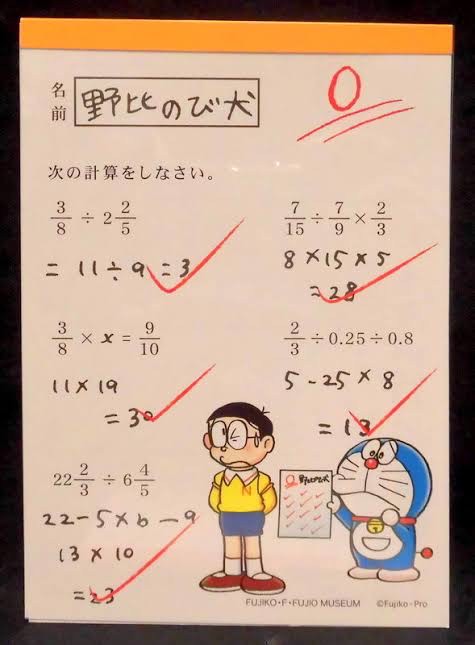 名前 野比のび犬
0
次の計算をしなさい。
3/8 ÷ 2 2/5
= 11 ÷ 9 = 3
7/15 ÷ 7/9 × 2/3
8 × 15 × 5
= 28
3/8 × x = 9/10
11 × 19
= 30
2/3 ÷ 0.25 ÷ 0.8
5 - 25 × 8
= 13
22 2/3 ÷ 6 4/5
22 - 5 × 6 - 9
13 × 10
= 23
0 野比のび犬
N
FUJIKO・F・FUJIO MUSEUM ©Fujiko-Pro